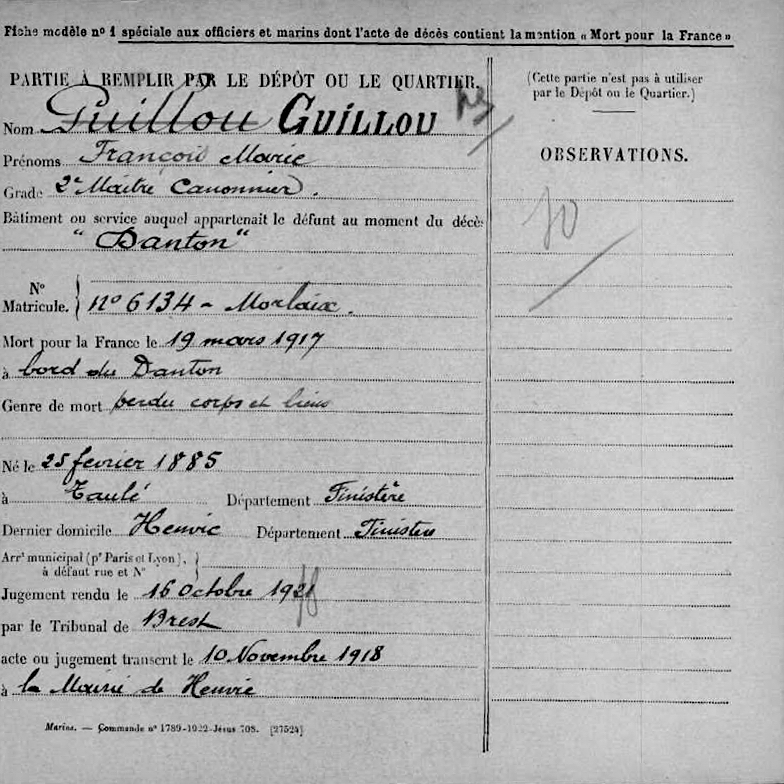 Fiche modèle nº 1 spéciale aux officiers et marins dont l'acte de décès contient la mention « Mort pour la France »
PARTIE À REMPLIR PAR LE DÉPÔT OU LE QUARTIER.
(Cette partie n'est pas à utiliser
par le Dépôt ou le Quartier.)
Nom Guillou GUILLOU
OBSERVATIONS.
Prénoms François Marie
Grade 2e Maître Canonnier.
Bâtiment ou service auquel appartenait le défunt au moment du décès
"Danton"
Nº
Matricule. nº 6134 - Morlaix.
Mort pour la France le 19 mars 1917
à bord du Danton
Genre de mort perdu corps et biens
Né le 25 fevrier 1885
à Taulé Département Finistère
Dernier domicile Henvic Département Finistere
Arrt municipal (pr Paris et Lyon),
à défaut rue et Nº
Jugement rendu le 16 Octobre 1921 18
par le Tribunal de Brest
acte ou jugement transcrit le 10 Novembre 1918
à la Mairie de Henvic
Marine. — Commande nº 1789-1922-Jésus 708. [27524]